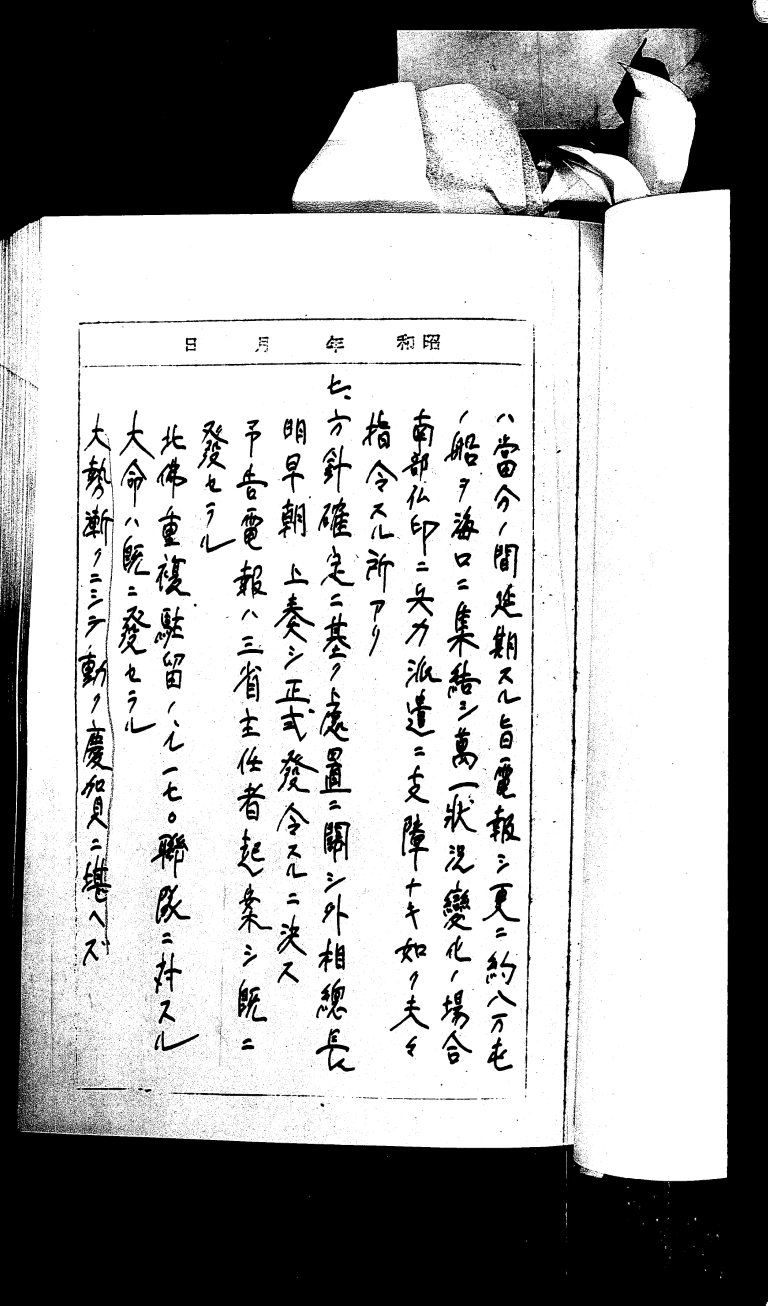 昭和　年　月　日
ハ當分ノ間延期スル旨電報シ更ニ約八万屯
ノ船ヲ海口ニ集結シ萬一狀況變化ノ場合
南部仏印ニ兵力派遣ニ支障ナキ如ク夫々
指令スル所アリ
七、方針確定ニ基ク處置ニ關シ外相總長
明早朝上奏シ正式發令スルニ決ス
予告電報ハ三省主任者起案シ既ニ
發セラル
北佛重複駐留ノ一七〇聯隊ニ対スル
大命ハ既ニ發セラル
大勢漸クニシテ動ク慶賀ニ堪ヘズ